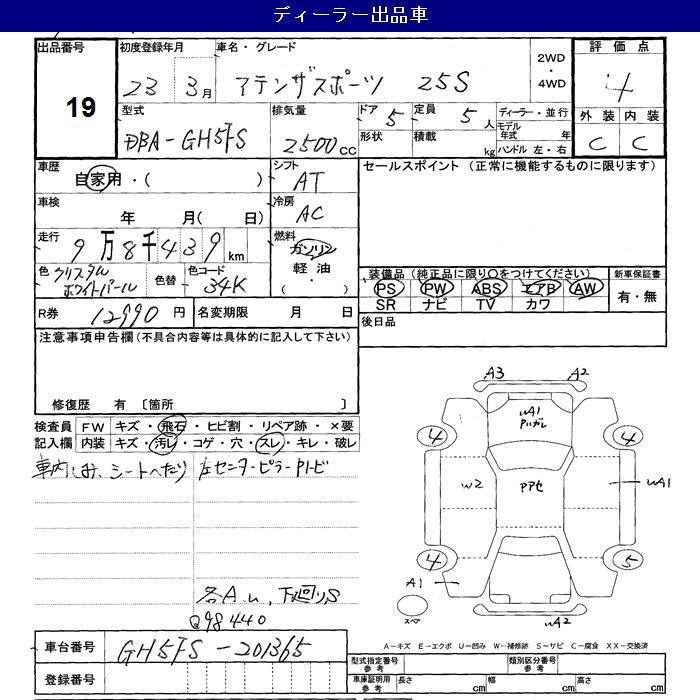 ディーラー出品車
出品番号 初度登録年月 車名・グレード 2WD ・ 4WD 評価点
19 23 3月 アテンザスポーツ 25S 4
型式 排気量 ドア 定員 ディーラー・並行 外装 内装
DBA-GH5FS 2500cc 5 5人 モデル年式 年 C C
形状 積載 kg ハンドル 左・右
車歴 シフト セールスポイント (正常に機能するものに限ります)
自家用・( ) AT
車検 冷房
年 月( 日) AC
走行 燃料
9万8千439km ガソリン
軽油
・( )
色 クリスタルホワイトパール 色替 色コード 34K
装備品(純正品に限り○をつけてください) 新車保証書
PS PW ABS エアB AW 有・無
SR ナビ TV カワ
R券 12990円 名変期限 月 日 後日品
注意事項申告欄(不具合内容等は具体的に記入して下さい)
修復歴 有 〔箇所 〕
検査員 FW キズ・飛石・ヒビ割・リペア跡・×要
記入欄 内装 キズ・汚レ・コゲ・穴・スレ・キレ・破レ
シートへたり 左センターピラー
下廻りS
98440
A3 A2
WA1
Pハガレ
4 4
W2 PPセ WA1
4 5
A1
スペア WA2
A-キズ E-エクボ U-凹み W-補修跡 S-サビ C-腐食 XX-交換済
車台番号 GH5FS-201365
登録番号
型式指定番号 参考 類別区分番号 参考
車庫証明用 参考 長さ cm 幅 cm 高さ cm